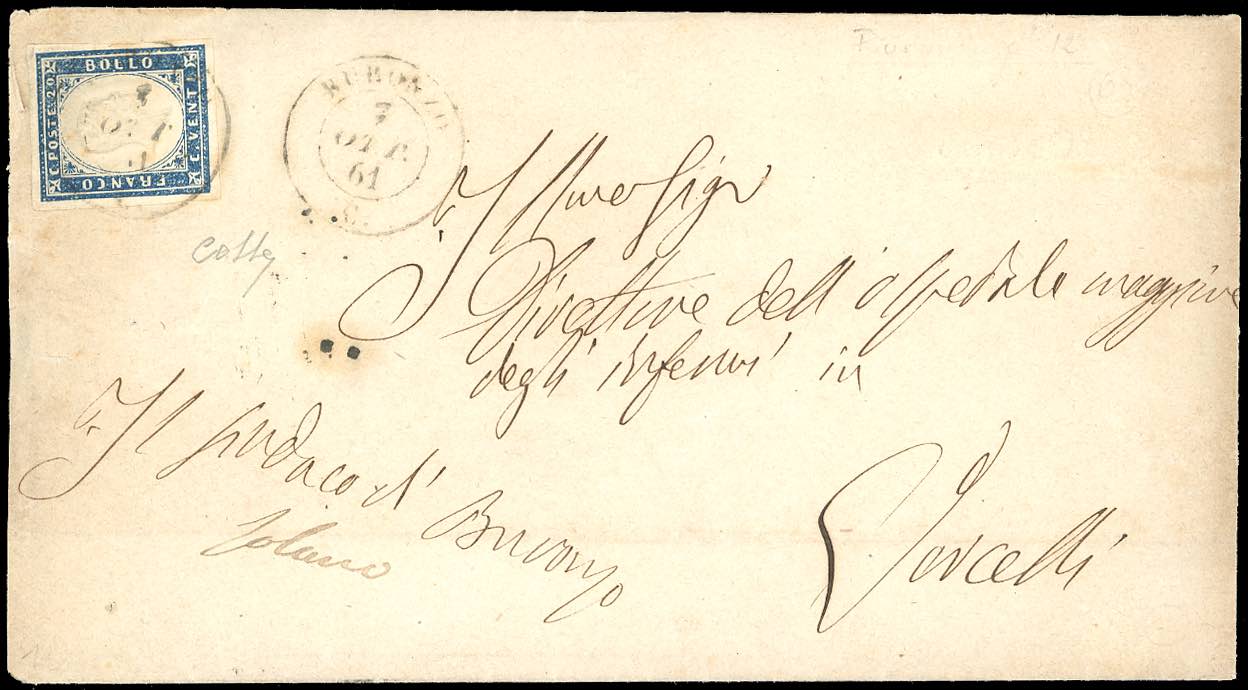 BOLLO
C. POSTE 20
C. VENTI
FRANCO
BURONZO
7
OTT.
61
Illmo Sigr
Direttore dell'ospedale maggiore
degli infermi in
Vercelli
Il sindaco di Buronzo